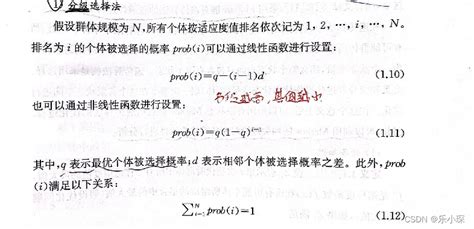 ① 分级选择法
假设群体规模为 N,所有个体按适应度值排名依次记为 1, 2, …, i, …, N。
排名为 i 的个体被选择的概率 prob(i)可以通过线性函数进行设置:
prob(i)=q-(i-1)d (1.10)
也可以通过非线性函数进行设置:
prob(i)=q(1-q)^{i-1} (1.11)
其中,q 表示最优个体被选择概率;d 表示相邻个体被选择概率之差。此外,prob
(i)满足以下关系:
∑_{i=1}^{N} prob(i)=1 (1.12)
CSDN @乐小琛